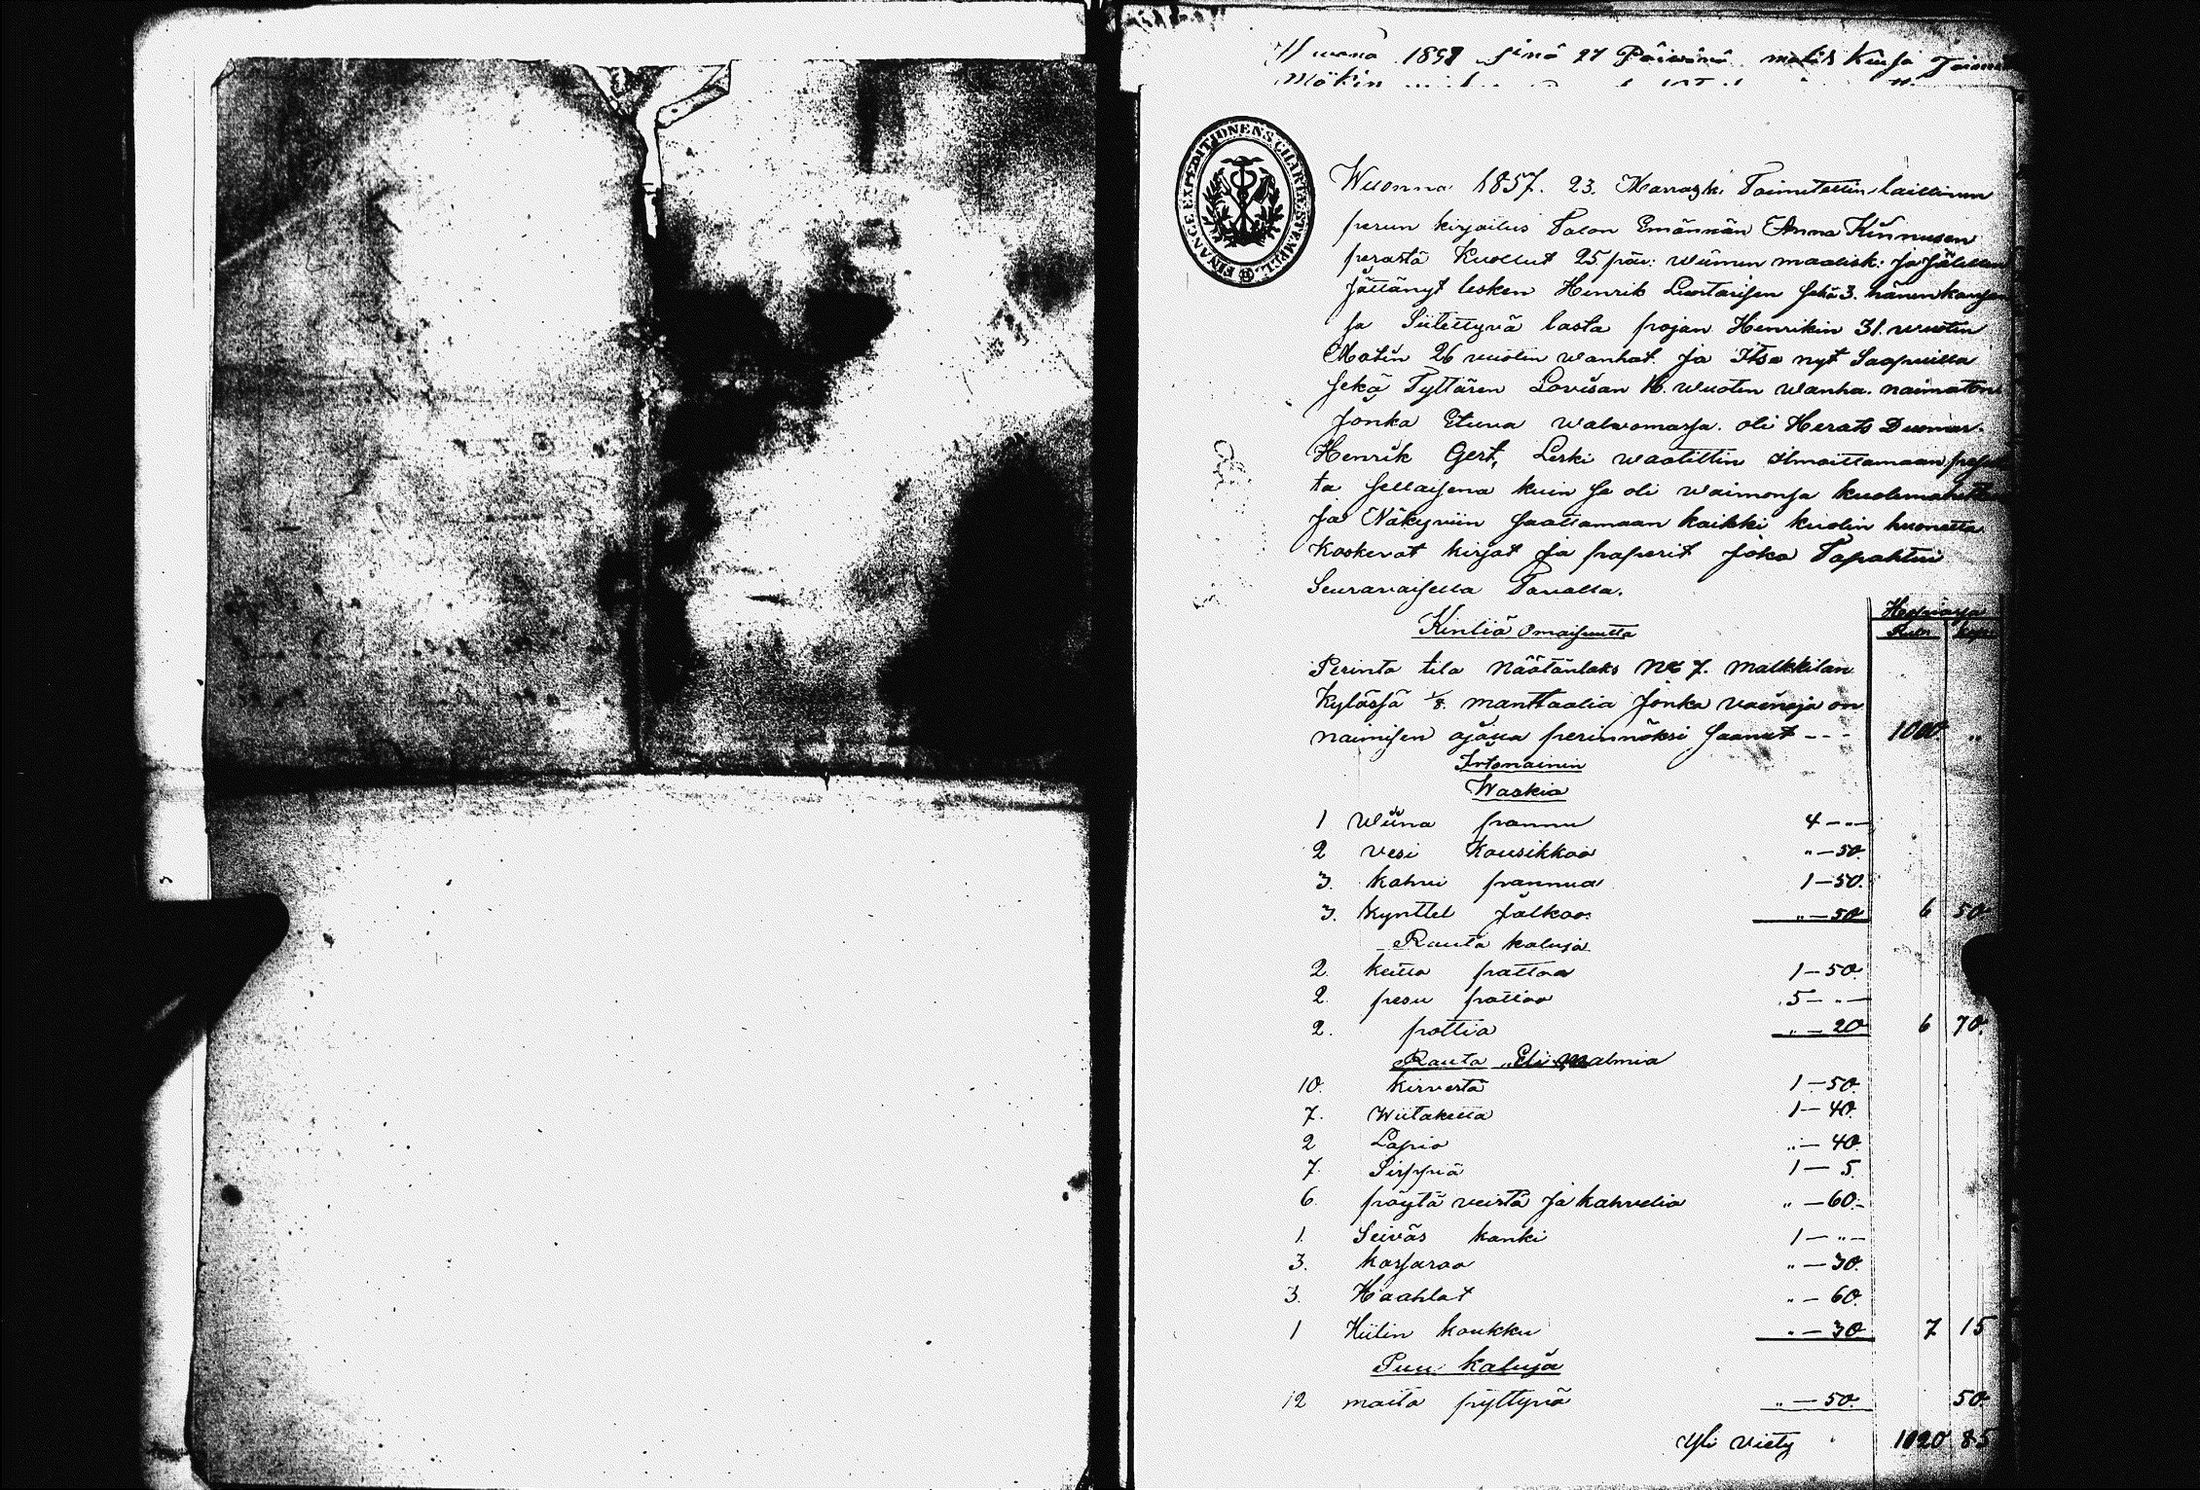 Wuonna 1858 sinä 27 Päivänä
Mökin
FINANCE EXPEDITIONENS CHARTÆ STEMPEL
Wuonna 1857. 23. Marrask: Toimitettin laillinen
perun kirjoitus Talon Emännän Anna Kinnusen
perästä Kuollut 25 päiv: wiimen maalisk: ja Jälillen
Jättänyt lesken Henrik Luostarisen sekä 3. hänen kanssan
sa Siitettyvä lasta pojan Henrikin 31. wuotin
Matin 26 wuotin wanhat. ja Itse nyt Saapuilla
sekä Tyttären Lovisan 16. wuotin wanha. naimaton
Jonka Etuva walwomassa. oli Herats Duomar.
Henrik Gert, Leski waatittin ilmoittamaan pesän
tä sellaisena kuin se oli waimonsa kuolemahetken
Ja Näkyviin saattamaan kaikki kuolin huonetta
Koskevat kirjat ja paperit Joka Tapahtui
Seuravaisella Tavalla.
Hopiassa
Kintiä omaisuutta
Rubl Kop
Perinto tila Näätänlaks No 7. Malkkilan
kylässä 1/8. manttaalia Jonka vainaja on
naimisen ajassa perinnöksi saanut - - - 1000 "
Irtonainen
Waskia
1 Wiina pannu 4 - " -
2 vesi Kousikkaa " - 50.
3. kahvi pannua 1 - 50.
3. kynttel Jalkaa. " - 50 6 50
Rauta kaluja
2. keitto pattaa 1 - 50.
2. pesu pattaa 5 - " -
2. pottia " - 20 6 70.
Rauta Eli Malmia
10. kirvestä 1 - 50.
7. Wiitaketta 1 - 40.
2 Lapio " - 40.
7. Sirppiä 1 - 5
6. pöytä veistä ja kahvelia " - 60 -
1. Seiväs kanki 1 - " -
3. kassaraa " - 30.
3. Haahlat " - 60.
1 Hiilin koukku " - 30. 7 15
Puu kaluja
12 maito pyttyvä " - 50. 50.
Yli viety 1020 85